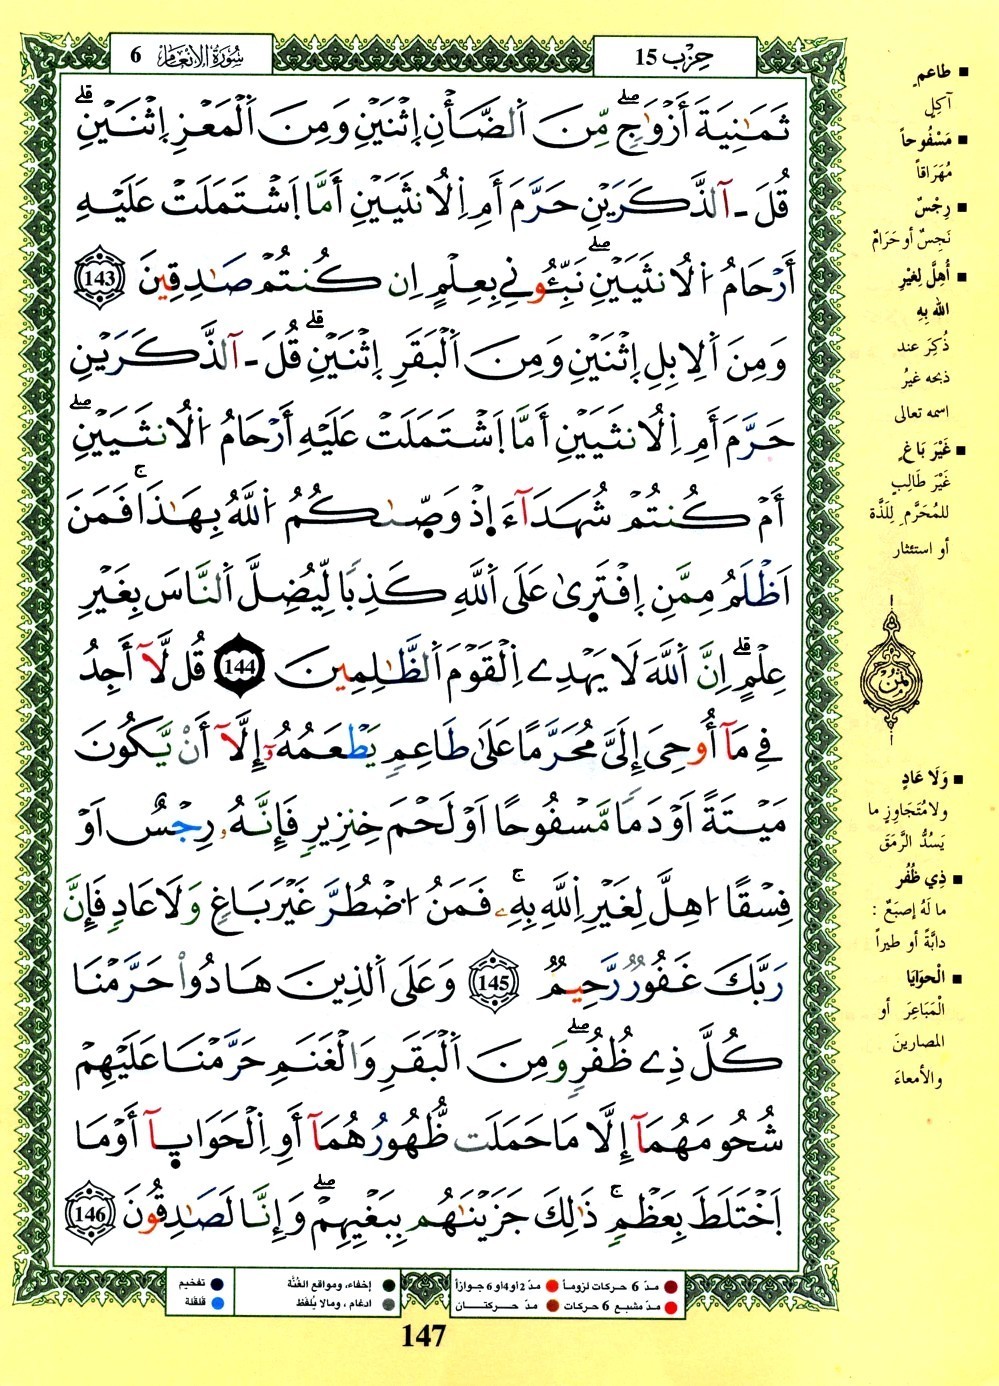 حِزْب 15
سُورَةُ الأنْعَام 6
ثَمَٰنِيَةَ أَزْوَٰجٖ مِّنَ اَ۬لضَّأْنِ اِ۪ثْنَيْنِ وَمِنَ اَ۬لْمَعْزِ اِ۪ثْنَيْنِ
قُلَ ـ آلذَّكَرَيْنِ حَرَّمَ أَمِ اِ۬لُانثَيَيْنِ أَمَّا اَ۪شْتَمَلَتْ عَلَيْهِ
أَرْحَامُ اُ۬لُانثَيَيْنِ نَبِّـُٔونِے بِعِلْمٍ اِن كُنتُمْ صَٰدِقِينَ 143
وَمِنَ اَ۬لِابِلِ اِ۪ثْنَيْنِ وَمِنَ اَ۬لْبَقَرِ اِ۪ثْنَيْنِ قُلَ ـ آلذَّكَرَيْنِ
حَرَّمَ أَمِ اِ۬لُانثَيَيْنِ أَمَّا اَ۪شْتَمَلَتْ عَلَيْهِ أَرْحَامُ اُ۬لُانثَيَيْنِ
أَمْ كُنتُمْ شُهَدَآءَ اِذْ وَصّ۪ىٰكُمُ اُ۬للَّهُ بِهَٰذَا فَمَنَ
اَظْلَمُ مِمَّنِ اِ۪فْتَر۪ىٰ عَلَى اَ۬للَّهِ كَذِباٗ لِّيُضِلَّ اَ۬لنَّاسَ بِغَيْرِ
عِلْمٍ اِنَّ اَ۬للَّهَ لَا يَهْدِے اِ۬لْقَوْمَ اَ۬لظَّٰلِمِينَ 144 قُل لَّآ أَجِدُ
فِے مَآ أُوحِيَ إِلَيَّ مُحَرَّماً عَلَىٰ طَاعِمٖ يَطْعَمُهُۥٓ إِلَّآ أَنْ يَّكُونَ
مَيْتَةً اَوْ دَماٗ مَّسْفُوحاً اَوْ لَحْمَ خِنزِيرٖ فَإِنَّهُۥ رِجْسٌ اَوْ
فِسْقاً ا۟هِلَّ لِغَيْرِ اِ۬للَّهِ بِهِۦ فَمَنُ اُ۟ضْطُرَّ غَيْرَ بَاغٖ وَلَا عَادٖ فَإِنَّ
رَبَّكَ غَفُورٞ رَّحِيمٞ 145 وَعَلَى اَ۬لذِينَ هَادُواْ حَرَّمْنَا
كُلَّ ذِے ظُفُرٖ وَمِنَ اَ۬لْبَقَرِ وَالْغَنَمِ حَرَّمْنَا عَلَيْهِمْ
شُحُومَهُمَآ إِلَّا مَا حَمَلَت ظُّهُورُهُمَآ أَوِ اِ۬لْحَوَاي۪آ أَوْ مَا
اَ۪خْتَلَطَ بِعَظْمٖ ذَٰلِكَ جَزَيْنَٰهُم بِبَغْيِهِمْ وَإِنَّا لَصَٰدِقُونَ 146
■ طاعمٍ
آكِلٍ
■ مَسْفُوحاً
مُهَرَاقاً
■ رِجْسٌ
نَجِسٌ أو حَرَامٌ
■ أُهِلَّ لِغَيْرِ
الله بِهِ
ذُكِرَ عند
ذبحه غيرُ
اسمه تعالى
■ غَيْرَ بَاغٍ
غَيْرَ طَالِبٍ
للمُحَرَّمِ لِلَذَّة
أو استئثار
ثمن
■ وَلَا عَادٍ
ولا مُتَجَاوِزٍ ما
يَسُدُّ الرَّمَقَ
■ ذِي ظُفُر
ما لَهُ إصبَعٌ :
دابَّةً أو طيراً
■ الْحَوَايَا
الْمَبَاعِرَ أو
المصارينَ
والأمعاءَ
مدّ 6 حركات لزوماً
مدّ 2 أو 4 أو 6 جوازاً
مدّ مشبع 6 حركات
مدّ حركتان
إخفاء، ومواقع الغُنَّة
ادغام ، ومالا يُلفظ
تفخيم
قلقلة
147